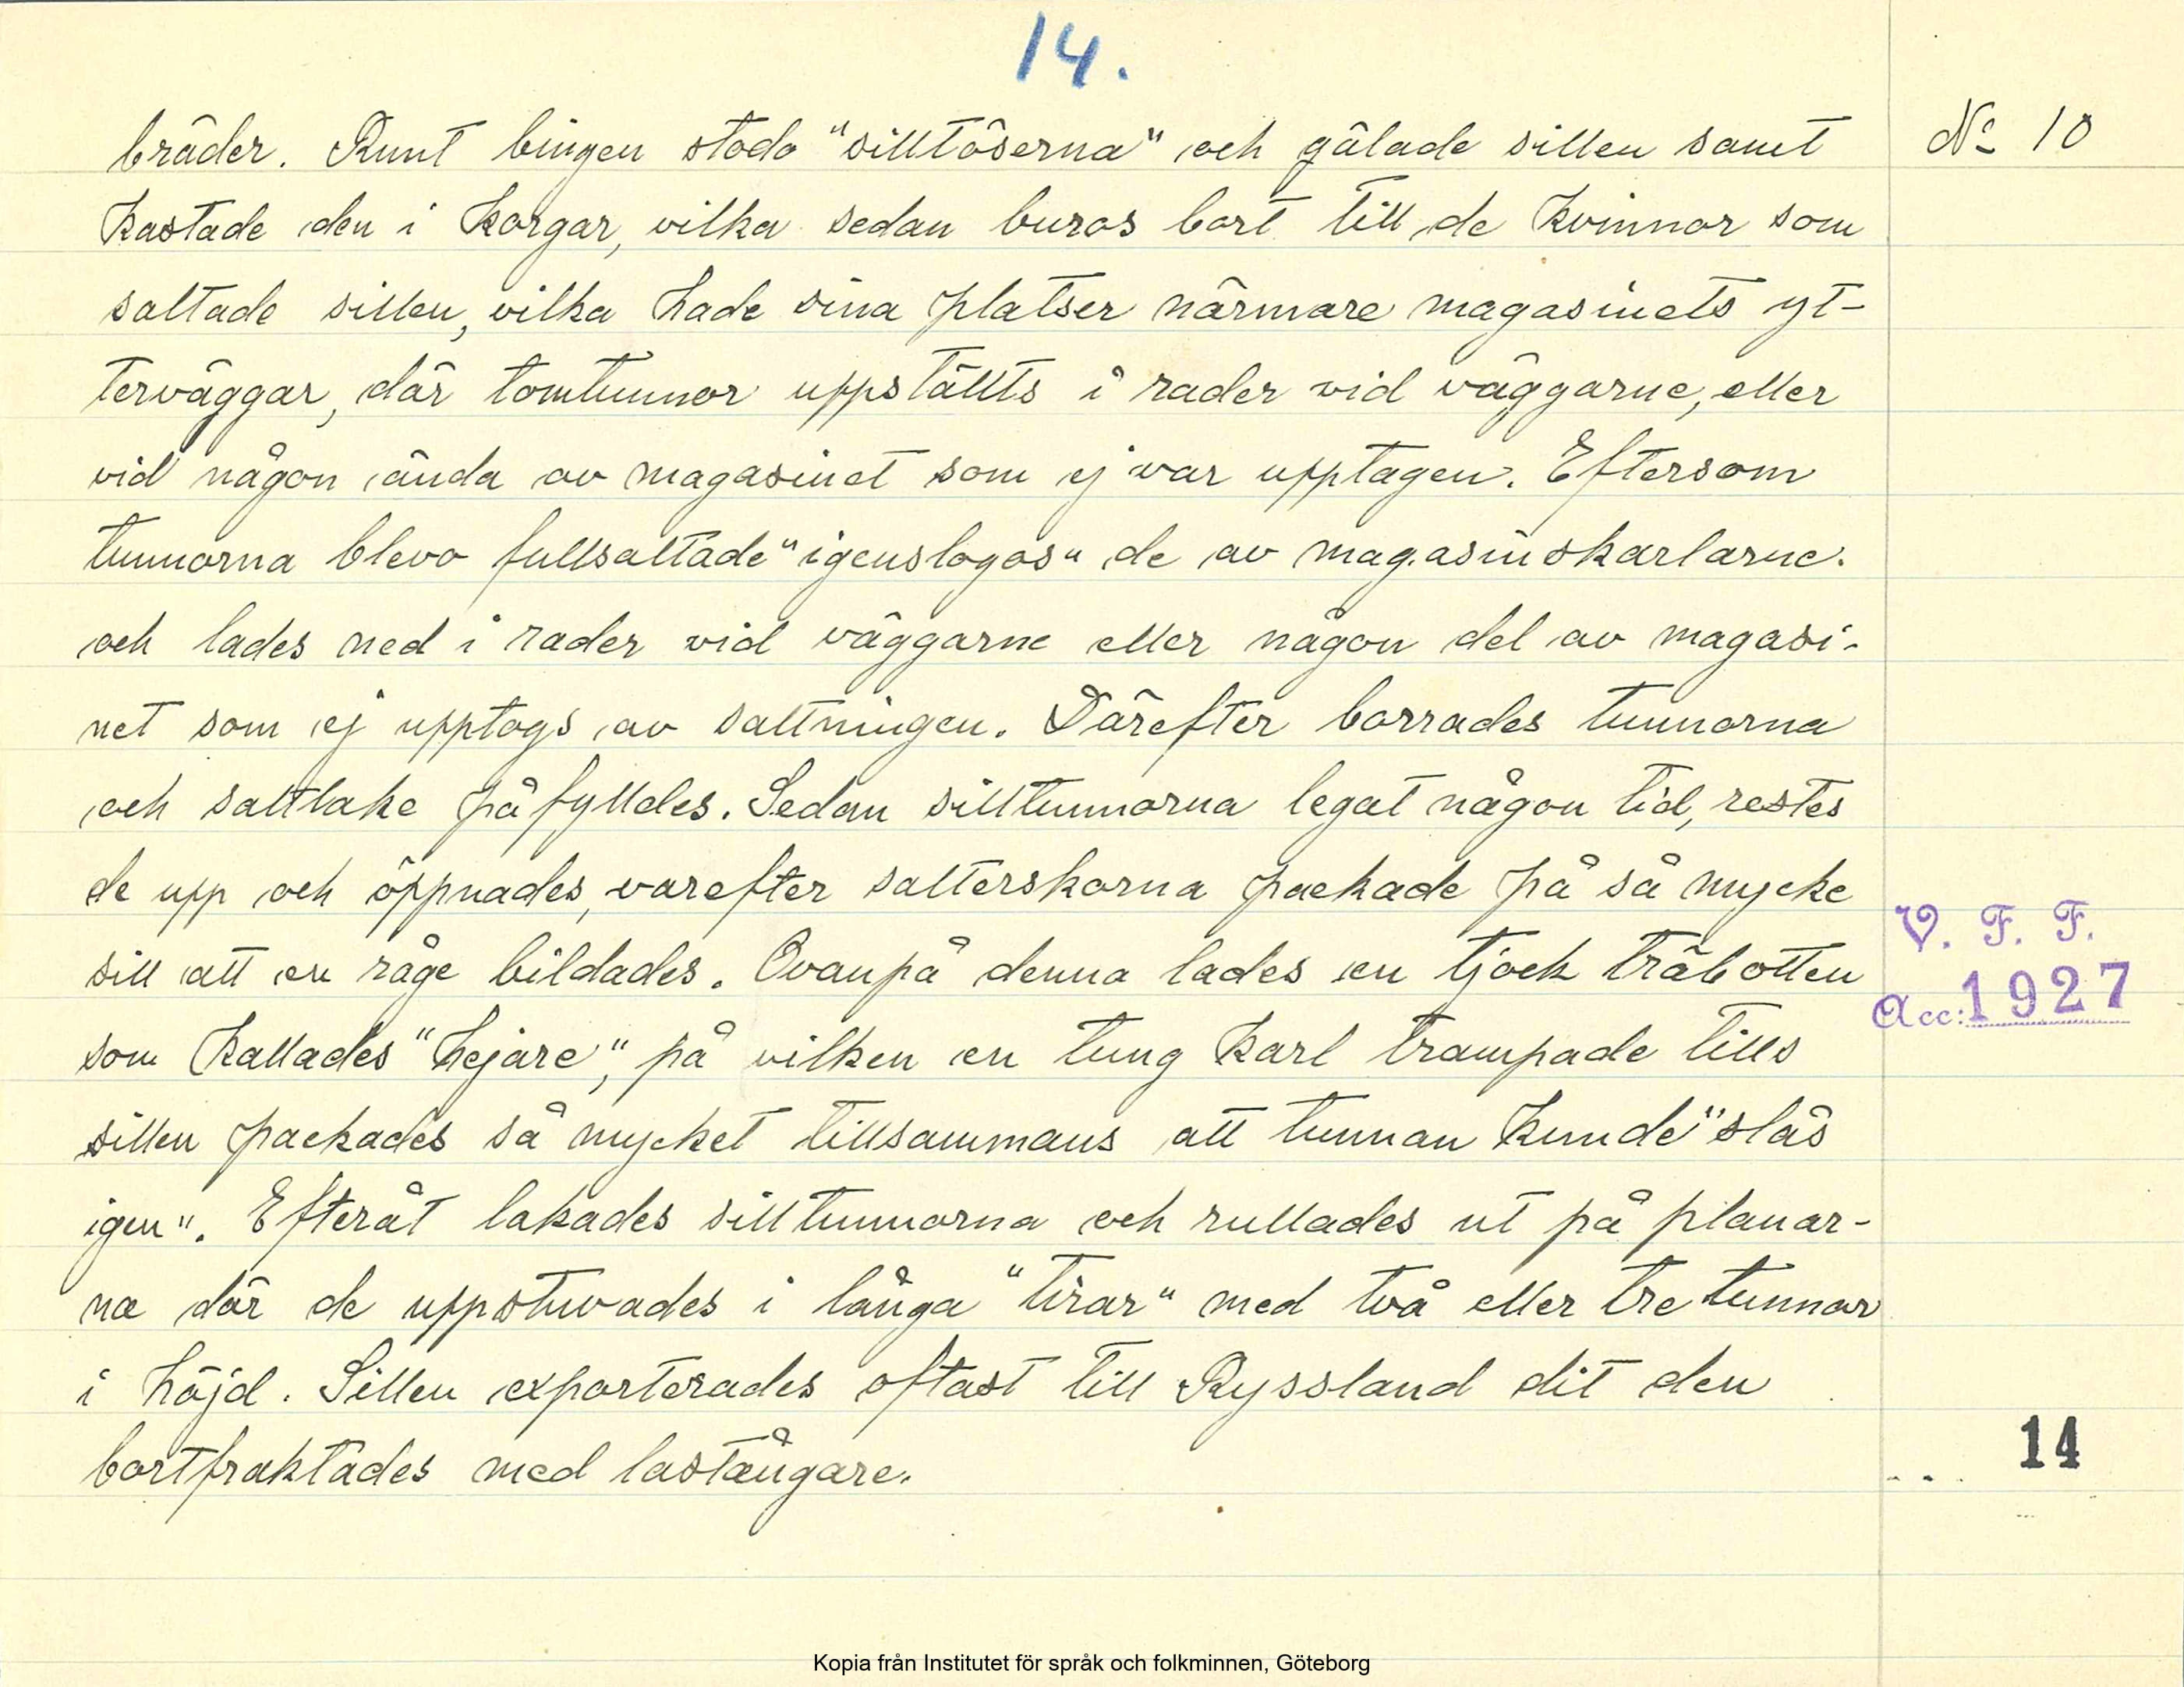 14.
bräder. Runt bingen stodo "silltöserna" och gälade sillen samt
Nº 10
kastade den i korgar, vilka sedan buros bort till de kvinnor som
saltade sillen, vilka hade sina platser närmare magasinets yt-
terväggar, där tomtunnor uppställts i rader vid väggarne, eller
vid någon ända av magasinet som ej var upptagen. Eftersom
tunnorna blevo fullsaltade "igenslogos" de av magasinskarlarne.
och lades ned i rader vid väggarne eller någon del av magasi-
net som ej upptogs av saltningen. Därefter borrades tunnorna
och saltlake påfylldes. Sedan silltunnorna legat någon tid, restes
de upp och öppnades, varefter salterskorna packade på så mycke
sill att en råge bildades. Ovanpå denna lades en tjock träbotten
V. F. F.
Acc: 1927
som kallades "hejare", på vilken en tung karl trampade tills
sillen packades så mycket tillsammans att tunnan kunde "slås
igen". Efteråt lakades silltunnorna och rullades ut på planar-
na där de uppstuvades i långa "tirar" med två eller tre tunnor
i höjd. Sillen exporterades oftast till Ryssland dit den
bortfraktades med lastångare.
14
Kopia från Institutet för språk och folkminnen, Göteborg